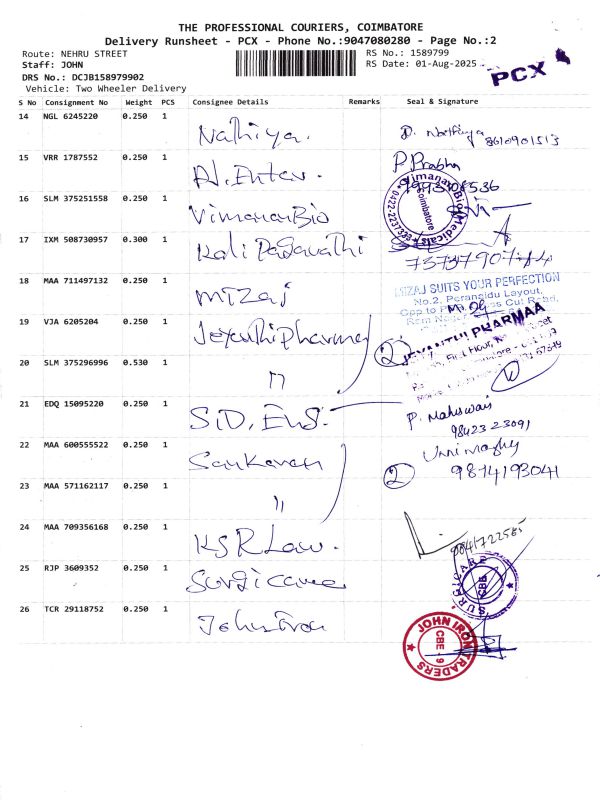 THE PROFESSIONAL COURIERS, COIMBATORE
Delivery Runsheet - PCX - Phone No.:9047080280 - Page No.:2
Route: NEHRU STREET
RS No.: 1589799
Staff: JOHN
RS Date: 01-Aug-2025
PCX
DRS No.: DCJB158979902
Vehicle: Two Wheeler Delivery
S No Consignment No Weight PCS Consignee Details Remarks Seal & Signature
14 NGL 6245220 0.250 1 Nathiya. D. Nathiya 8610901513
15 VRR 1787552 0.250 1 P. Prabha
16 SLM 375251558 0.250 1 Vimanan Bio
Vimanan Bio Medicals Coimbatore
17 IXM 508730957 0.300 1 Kali Pagavathi
18 MAA 711497132 0.250 1 Mizaj
MIZAJ SUITS YOUR PERFECTION
No.2, Perangidu Layout,
19 VJA 6205204 0.250 1 Jeyanthi pharma
2 JEYANTHI PHARMAA
20 SLM 375296996 0.530 1 "
21 EDQ 15095220 0.250 1 SID, Eng. P. Maheswari
98423 23091
22 MAA 600555522 0.250 1 Sankaran
2 9814193041
23 MAA 571162117 0.250 1 "
24 MAA 709356168 0.250 1 KSR Law.
25 RJP 3609352 0.250 1 Surgicare
SURGICARE CBE
26 TCR 29118752 0.250 1 John Iron
JOHN IRON TRADERS CBE - 9